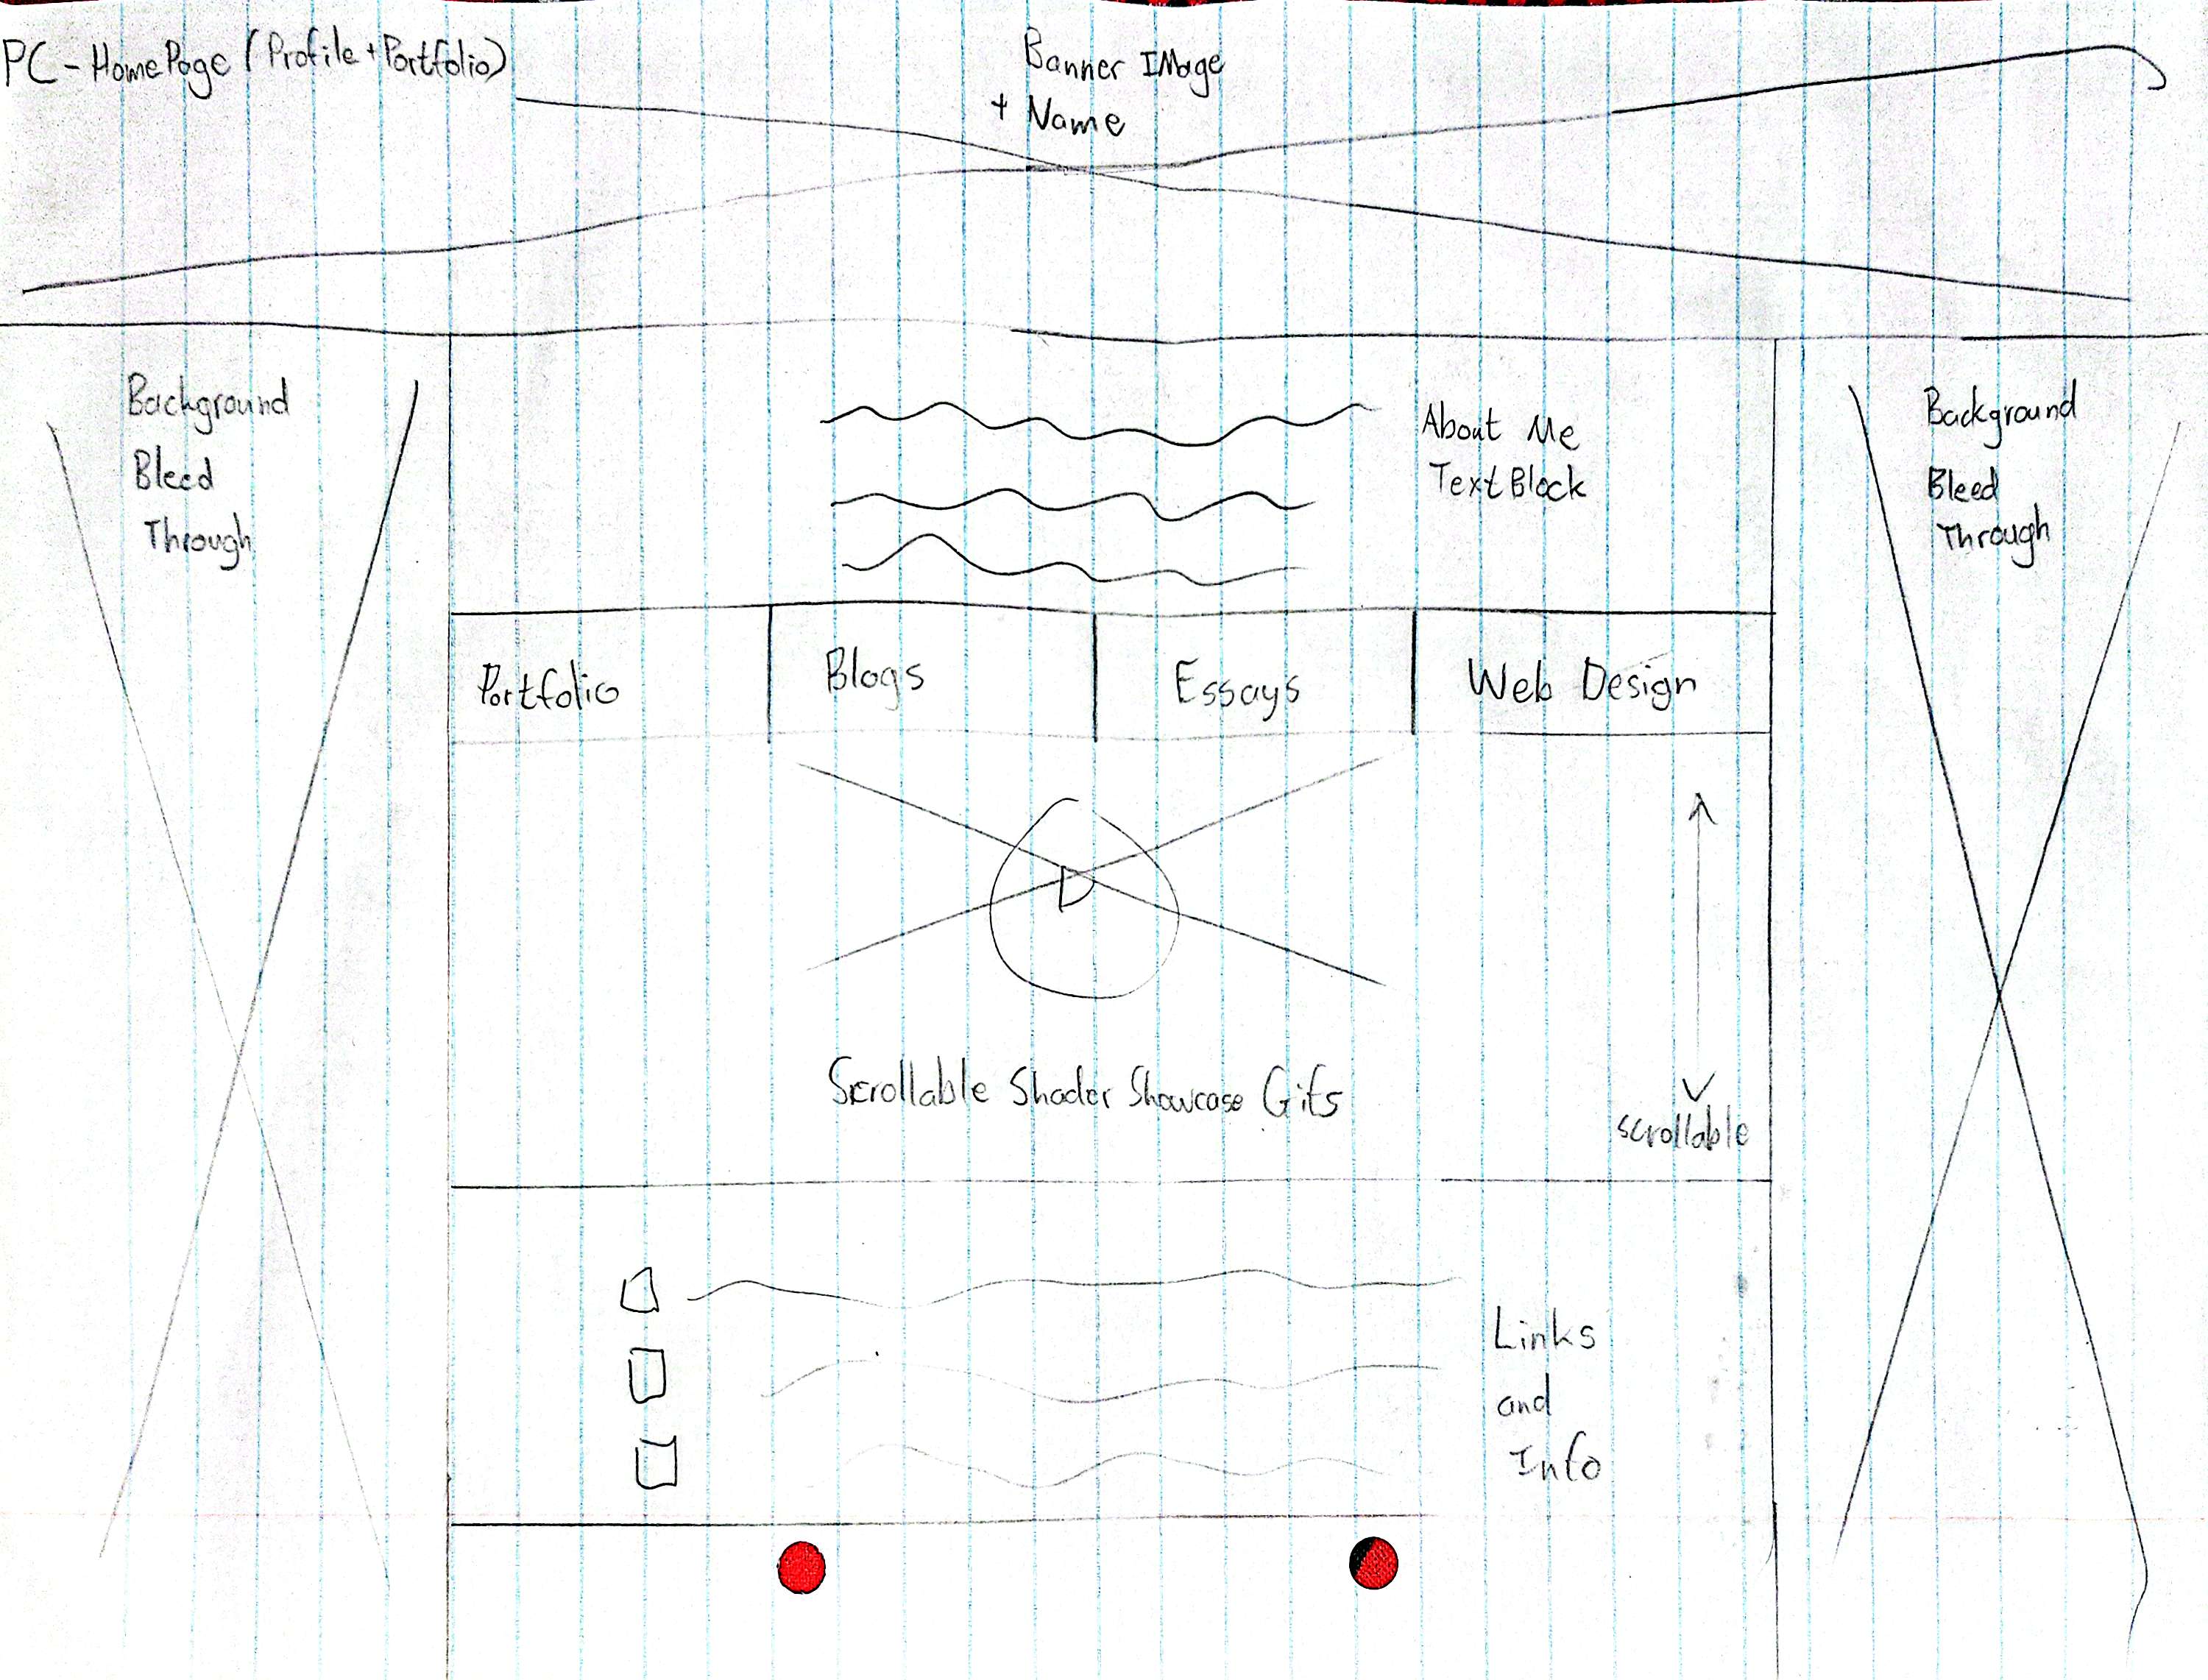 PC - HomePage (Profile + Portfolio)
Banner IMage
+ Name
Background
Bleed
Through
About Me
Text Block
Background
Bleed
Through
Portfolio
Blogs
Essays
Web Design
Scrollable Shader Showcase Gifs
scrollable
Links
and
Info